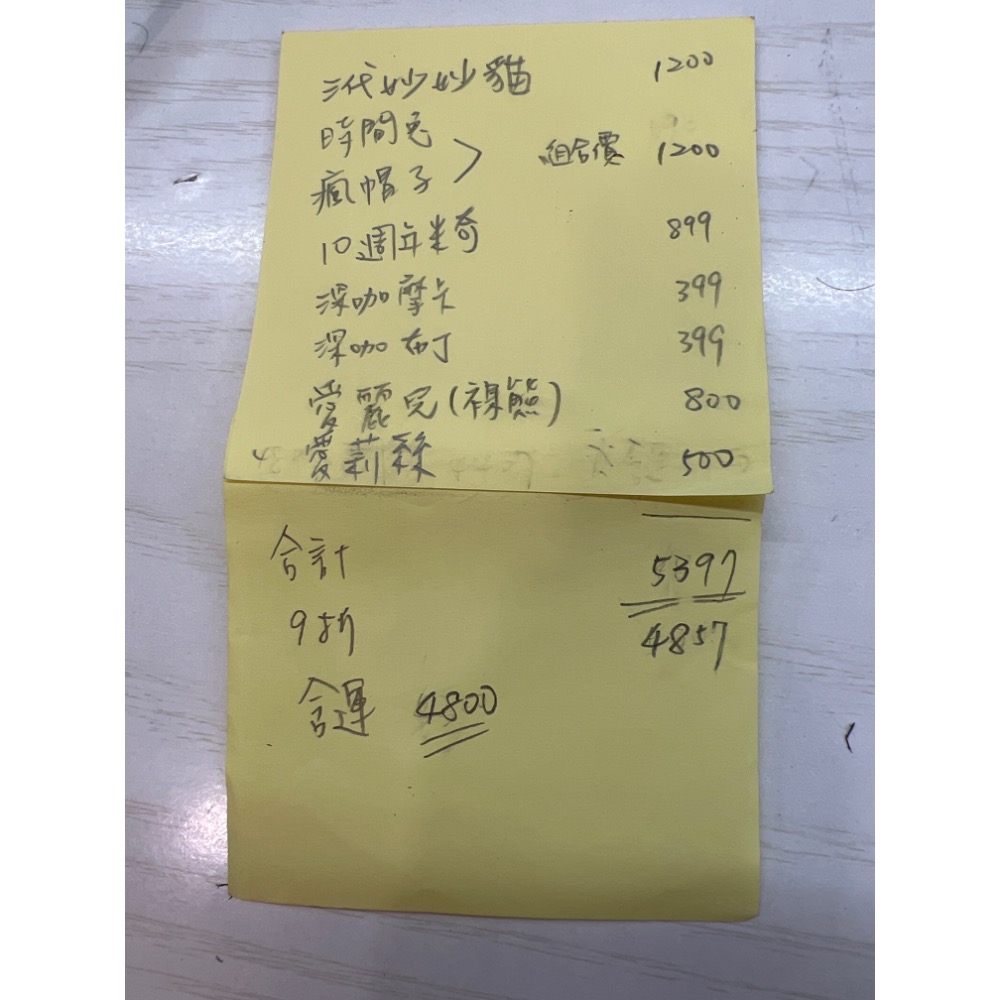 三代妙妙貓 1200
時間兔
瘋帽子 > 組合價 1200
10週年米奇 899
深咖摩卡 399
深咖布丁 399
愛麗兒(裸熊) 800
愛莉絲 500
合計 5397
9折 4857
含運 4800